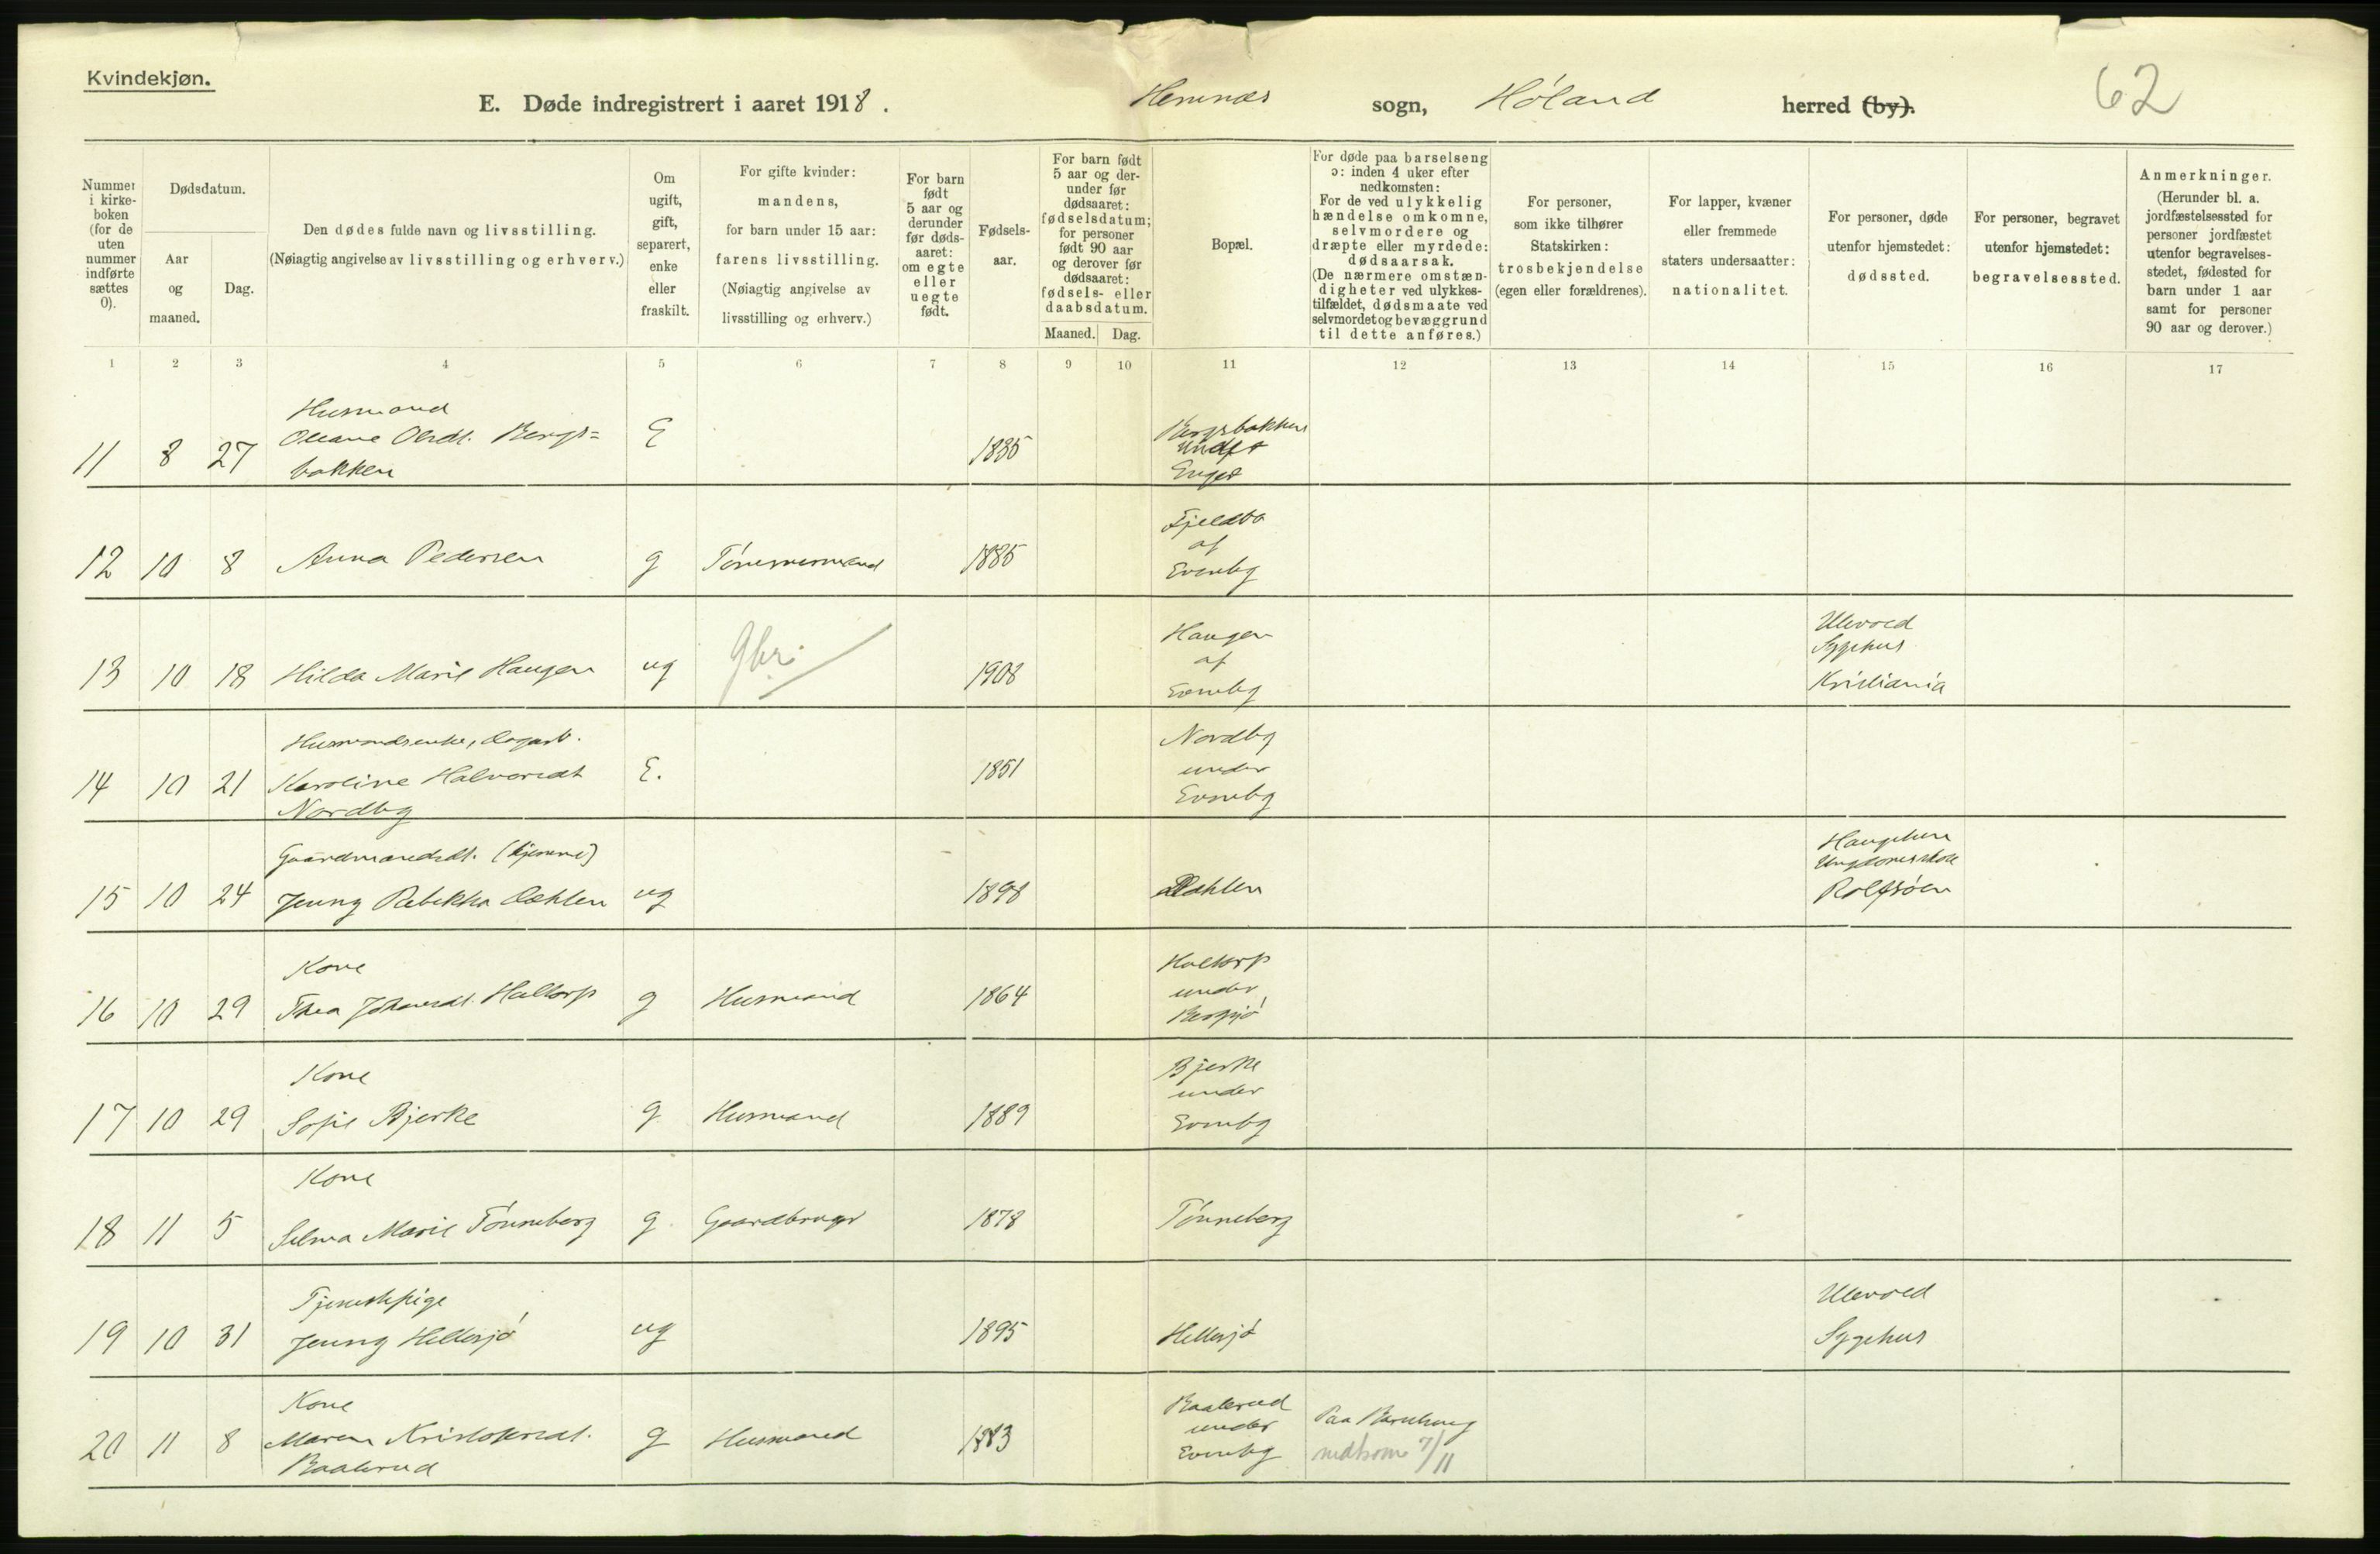 Kvindekjøn.
E. Døde indregistrert i aaret 1918.
Hemnæs sogn, Høland herred (by).
62
Nummer
i kirke-
boken
(for de
uten
nummer
indførte
sættes
0).
Dødsdatum.
Aar
og
maaned.
Dag.
Den dødes fulde navn og livsstilling.
(Nøiagtig angivelse av livsstilling og erhverv.)
Om
ugift,
gift,
separert,
enke
eller
fraskilt.
For gifte kvinder:
mandens,
for barn under 15 aar:
farens livsstilling.
(Nøiagtig angivelse av
livsstilling og erhverv.)
For barn
født
5 aar og
derunder
før døds-
aaret:
om egte
eller
uegte
født.
Fødsels-
aar.
For barn født
5 aar og der-
under før
dødsaaret:
fødselsdatum;
for personer
født 90 aar
og derover før
dødsaaret:
fødsels- eller
daabsdatum.
Maaned. Dag.
Bopæl.
For døde paa barselseng
ɔ: inden 4 uker efter
nedkomsten:
For de ved ulykkelig
hændelse omkomne,
selvmordere og
dræpte eller myrdede:
dødsaarsak.
(De nærmere omstæn-
digheter ved ulykkes-
tilfældet, dødsmaate ved
selvmordet og bevæggrund
til dette anføres.)
For personer,
som ikke tilhører
Statskirken:
trosbekjendelse
(egen eller forældrenes).
For lapper, kvæner
eller fremmede
staters undersaatter:
nationalitet.
For personer, døde
utenfor hjemstedet:
dødssted.
For personer, begravet
utenfor hjemstedet:
begravelsessted.
Anmerkninger.
(Herunder bl. a.
jordfæstelsessted for
personer jordfæstet
utenfor begravelses-
stedet, fødested for
barn under 1 aar
samt for personer
90 aar og derover.)
1 2 3 4 5 6 7 8 9 10 11 12 13 14 15 16 17
Husmand
11 8 27 Oleane Olsdt. Bergs=
bakken
E 1835
Bergsbakken
Undft
Enget
12 10 8 Anna Pedersen g Tømmermand 1885
Fjeldbo
af
Evenby
13 10 18 Hilda Marie Haugen ug Gbr. 1908
Haugen
af
Evenby
Ulevold
Sygehus
Kristiania
Husmandsenke,
14 10 21 Karoline Halvorsdt
Nordby
E. 1851
Nordby
under
Evenby
Gaardmandsdt. (hjemme)
15 10 24 Jenny Rebekka Dahlen ug 1898 Dahlen
Haugetun
Ungdomsskole
Rolfsøen
Kone
16 10 29 Thea Johansdt. Haltorp g Husmand 1864
Haltorp
under
Bergsjø
Kone
17 10 29 Sofie Bjerke g Husmand 1889
Bjerke
under
Evenby
Kone
18 11 5 Selma Marie Tønneberg g Gaardbruger 1878 Tønneberg
Tjenestepige
19 10 31 Jenny Hellesjø ug 1895 Hellesjø
Ulevold
Sygehus
Kone
20 11 8 Maren Kristofersdt.
Baalerud
g Husmand 1883
Baalerud
under
Evenby
Paa Barselseng
nedkom 7/11